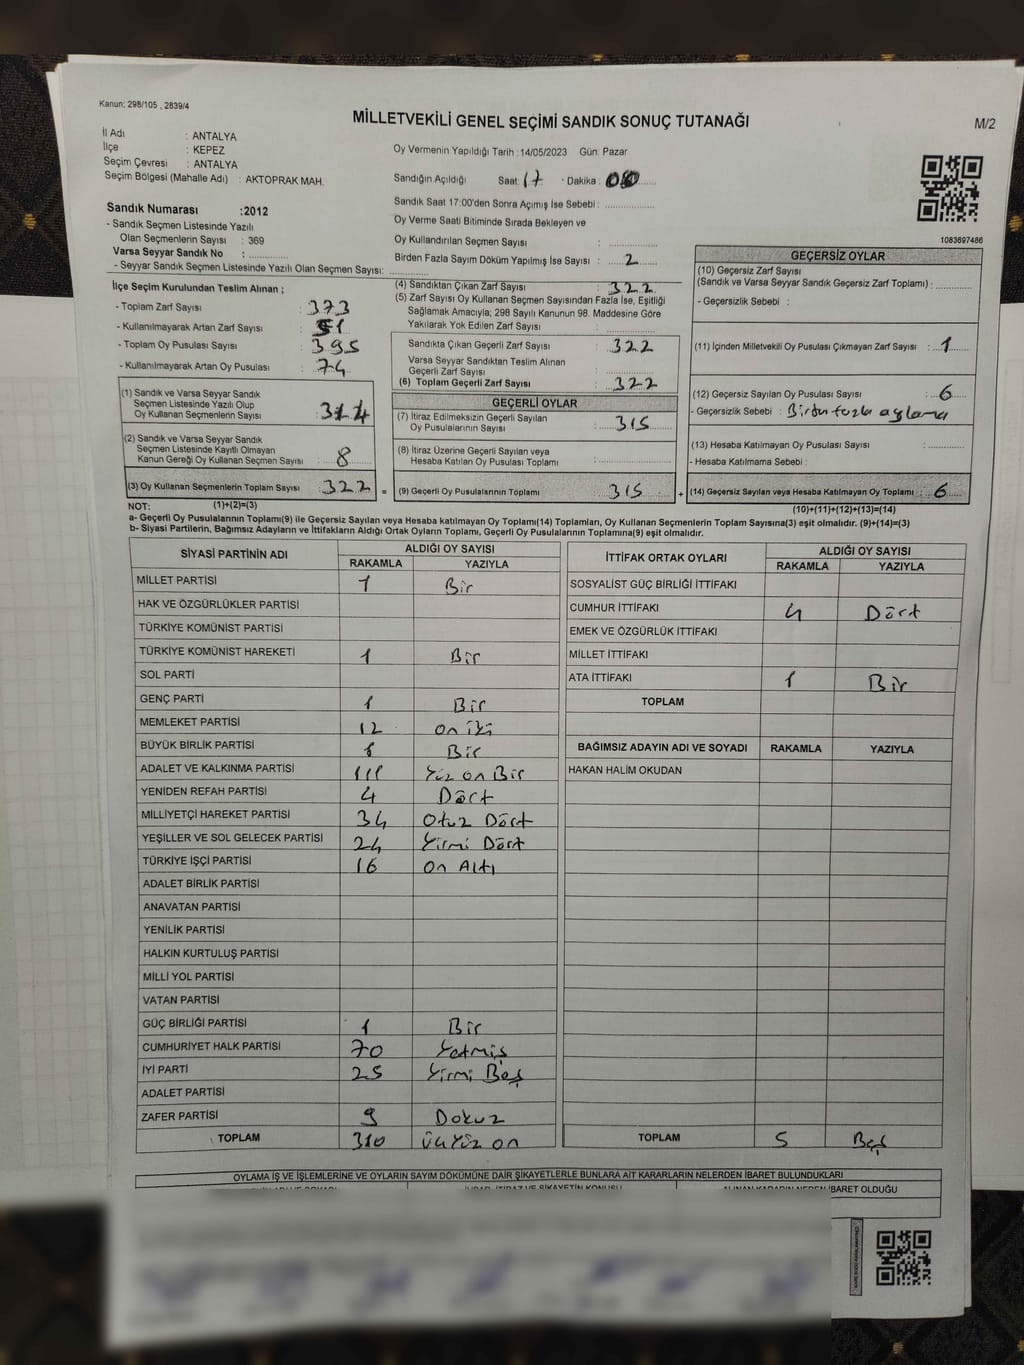 Kanun; 298/105 , 2839/4
MİLLETVEKİLİ GENEL SEÇİMİ SANDIK SONUÇ TUTANAĞI
M/2
İl Adı : ANTALYA
İlçe : KEPEZ
Seçim Çevresi : ANTALYA
Seçim Bölgesi (Mahalle Adı) : AKTOPRAK MAH.
Oy Vermenin Yapıldığı Tarih :14/05/2023 Gün: Pazar
Sandığın Açıldığı Saat: 17 Dakika :
Sandık Saat 17:00'den Sonra Açılmış İse Sebebi :
Oy Verme Saati Bitiminde Sırada Bekleyen ve
Oy Kullandırılan Seçmen Sayısı :
Birden Fazla Sayım Döküm Yapılmış İse Sayısı : 2
Sandık Numarası :2012
- Sandık Seçmen Listesinde Yazılı
Olan Seçmenlerin Sayısı : 369
Varsa Seyyar Sandık No :
- Seyyar Sandık Seçmen Listesinde Yazılı Olan Seçmen Sayısı:
İlçe Seçim Kurulundan Teslim Alınan ;
- Toplam Zarf Sayısı : 373
- Kullanılmayarak Artan Zarf Sayısı : 51
- Toplam Oy Pusulası Sayısı : 395
- Kullanılmayarak Artan Oy Pusulası : 74
(1) Sandık ve Varsa Seyyar Sandık
Seçmen Listesinde Yazılı Olup
Oy Kullanan Seçmenlerin Sayısı : 314
(2) Sandık ve Varsa Seyyar Sandık
Seçmen Listesinde Kayıtlı Olmayan
Kanun Gereği Oy Kullanan Seçmen Sayısı : 8
(3) Oy Kullanan Seçmenlerin Toplam Sayısı : 322
(4) Sandıktan Çıkan Zarf Sayısı : 322
(5) Zarf Sayısı Oy Kullanan Seçmen Sayısından Fazla İse, Eşitliği
Sağlamak Amacıyla; 298 Sayılı Kanunun 98. Maddesine Göre
Yakılarak Yok Edilen Zarf Sayısı :
Sandıkta Çıkan Geçerli Zarf Sayısı : 322
Varsa Seyyar Sandıktan Teslim Alınan
Geçerli Zarf Sayısı :
(6) Toplam Geçerli Zarf Sayısı : 322
GEÇERLİ OYLAR
(7) İtiraz Edilmeksizin Geçerli Sayılan
Oy Pusulalarının Sayısı : 315
(8) İtiraz Üzerine Geçerli Sayılan veya
Hesaba Katılan Oy Pusulası Toplamı :
= (9) Geçerli Oy Pusulalarının Toplamı : 315 +
1083697486
GEÇERSİZ OYLAR
(10) Geçersiz Zarf Sayısı
(Sandık ve Varsa Seyyar Sandık Geçersiz Zarf Toplamı) :
- Geçersizlik Sebebi :
(11) İçinden Milletvekili Oy Pusulası Çıkmayan Zarf Sayısı : 1
(12) Geçersiz Sayılan Oy Pusulası Sayısı : 6
- Geçersizlik Sebebi : Birden fazla
(13) Hesaba Katılmayan Oy Pusulası Sayısı :
- Hesaba Katılmama Sebebi :
(14) Geçersiz Sayılan veya Hesaba Katılmayan Oy Toplamı : 6
NOT: (1)+(2)=(3)
(10)+(11)+(12)+(13)=(14)
a- Geçerli Oy Pusulalarının Toplamı(9) ile Geçersiz Sayılan veya Hesaba katılmayan Oy Toplamı(14) Toplamları, Oy Kullanan Seçmenlerin Toplam Sayısına(3) eşit olmalıdır. (9)+(14)=(3)
b- Siyasi Partilerin, Bağımsız Adayların ve İttifakların Aldığı Ortak Oyların Toplamı, Geçerli Oy Pusulalarının Toplamına(9) eşit olmalıdır.
SİYASİ PARTİNİN ADI ALDIĞI OY SAYISI
RAKAMLA YAZIYLA
MİLLET PARTİSİ 1 Bir
HAK VE ÖZGÜRLÜKLER PARTİSİ
TÜRKİYE KOMÜNİST PARTİSİ
TÜRKİYE KOMÜNİST HAREKETİ 1 Bir
SOL PARTİ
GENÇ PARTİ 1 Bir
MEMLEKET PARTİSİ 12 on iki
BÜYÜK BİRLİK PARTİSİ 1 Bir
ADALET VE KALKINMA PARTİSİ 111 Yüz on Bir
YENİDEN REFAH PARTİSİ 4 Dört
MİLLİYETÇİ HAREKET PARTİSİ 34 Otuz Dört
YEŞİLLER VE SOL GELECEK PARTİSİ 24 Yirmi Dört
TÜRKİYE İŞÇİ PARTİSİ 16 on Altı
ADALET BİRLİK PARTİSİ
ANAVATAN PARTİSİ
YENİLİK PARTİSİ
HALKIN KURTULUŞ PARTİSİ
MİLLİ YOL PARTİSİ
VATAN PARTİSİ
GÜÇ BİRLİĞİ PARTİSİ 1 Bir
CUMHURİYET HALK PARTİSİ 70 Yetmiş
İYİ PARTİ 25 Yirmi Beş
ADALET PARTİSİ
ZAFER PARTİSİ 9 Dokuz
TOPLAM 310 üçYüz on
İTTİFAK ORTAK OYLARI ALDIĞI OY SAYISI
RAKAMLA YAZIYLA
SOSYALİST GÜÇ BİRLİĞİ İTTİFAKI
CUMHUR İTTİFAKI 4 Dört
EMEK VE ÖZGÜRLÜK İTTİFAKI
MİLLET İTTİFAKI
ATA İTTİFAKI 1 Bir
TOPLAM
BAĞIMSIZ ADAYIN ADI VE SOYADI RAKAMLA YAZIYLA
HAKAN HALİM OKUDAN
TOPLAM 5 Beş
OYLAMA İŞ VE İŞLEMLERİNE VE OYLARIN SAYIM DÖKÜMÜNE DAİR ŞİKAYETLERLE BUNLARA AİT KARARLARIN NELERDEN İBARET BULUNDUKLARI
ALINAN KARARIN NEDEN İBARET OLDUĞU